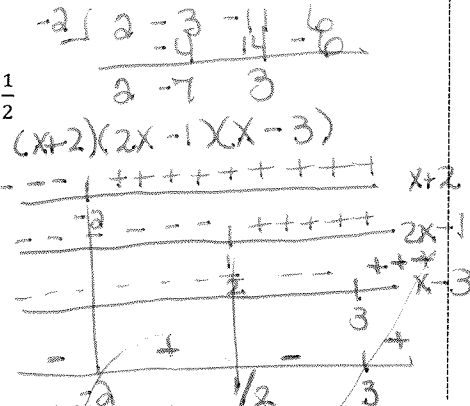 -2 2 -3 -11 6
-4 14 -6
2 -7 3
1/2
(x+2)(2x-1)(x-3)
- - - + + + + + + + + + x+2
-2
- - - - - - + + + + + 2x-1
1/2
- - - - - - - - + + + x-3
3
- + - +
-2 1/2 3